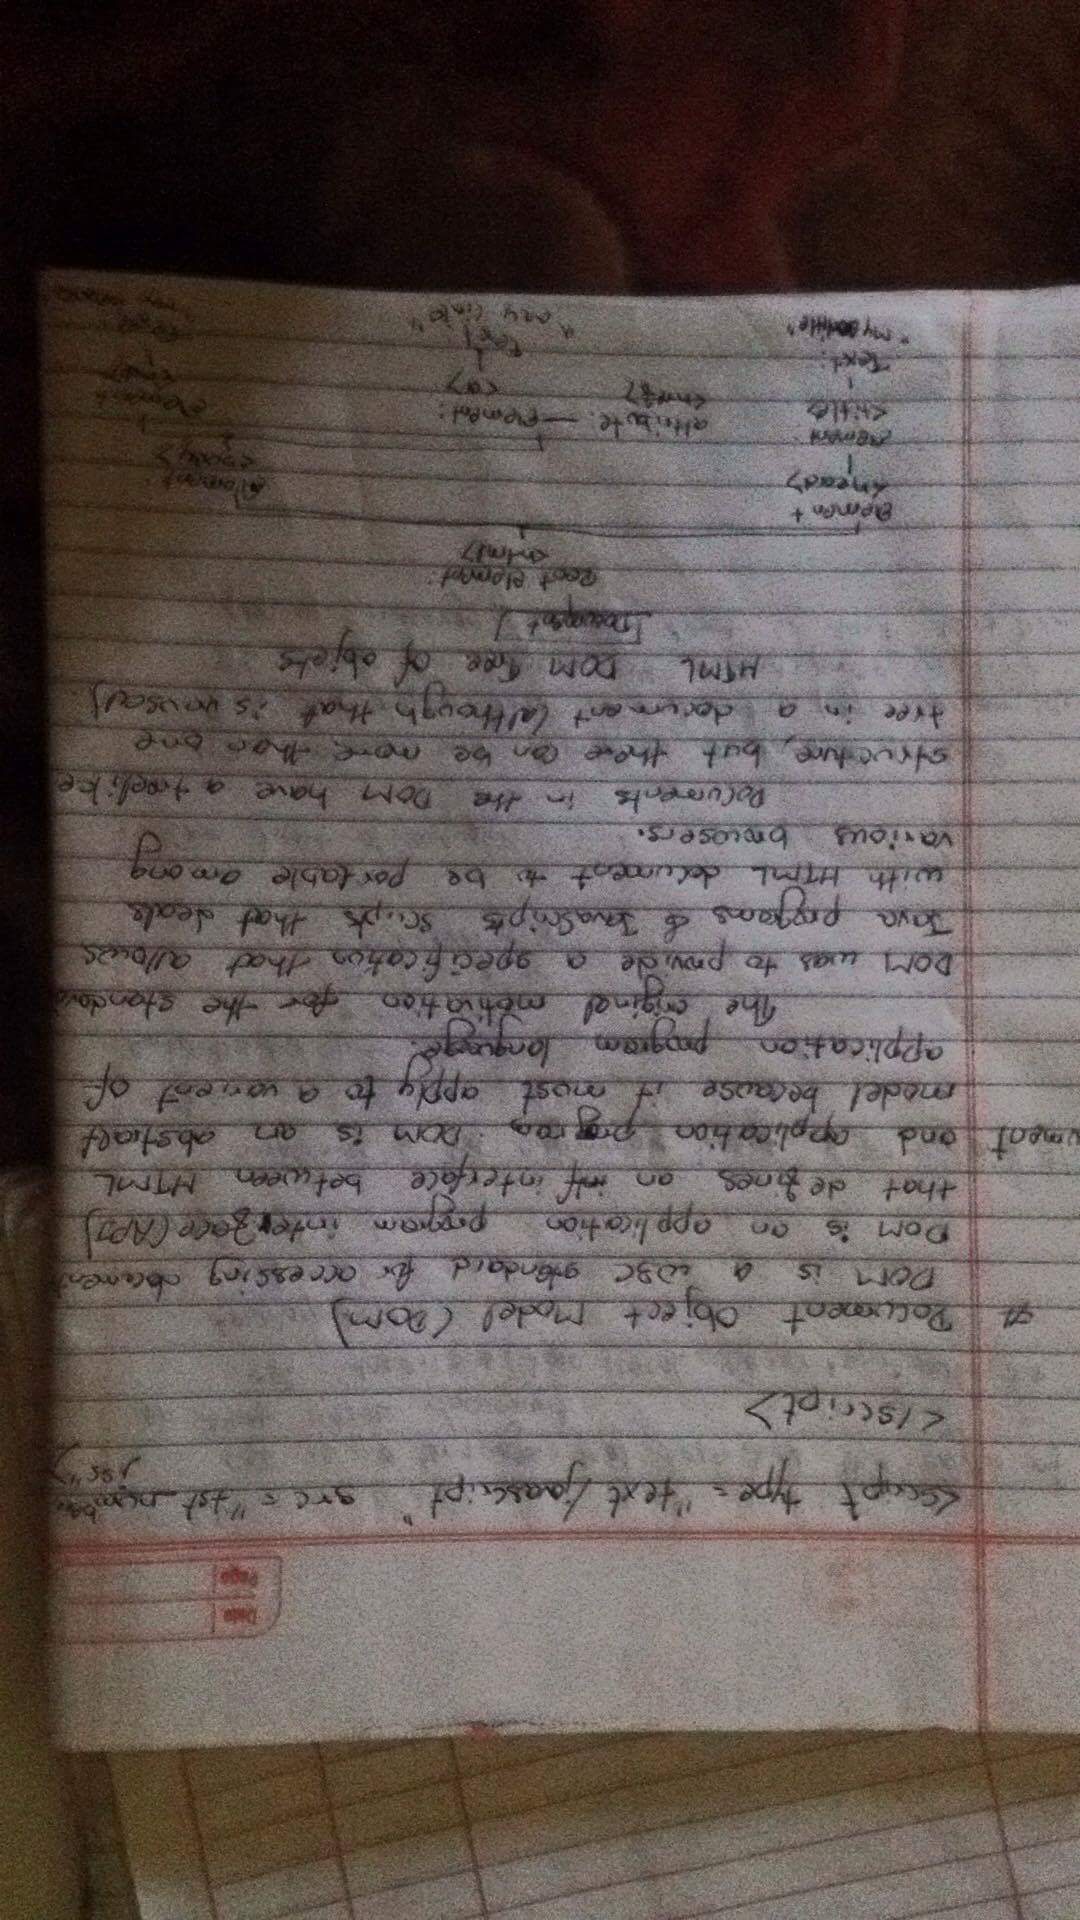 Date
Page
<script type= "text/jaascript" src = "tst_number
js">
</script>
Document Object Model (DOM)
DOM is a W3C standard for accessing document
DOM is an application program interface (API)
that defines an intf interface between HTML
ument and application program DOM is an abstract
model because it most apply to a varient of
application program language.
The original motivation for the standard
DOM was to provide a specification that allows
Java programs & JavaScripts scripts that deals
with HTML document to be portable among
various browsers.
Documents in the DOM have a treelike
structure, but there can be more than one
tree in a document (although that is unusal)
HTML DOM Tree of objets
[Document]
Root element:
<html>
Element
<head>
Element
<body>
element
<title>
attribute. element:
<href> <a>
element
Text:
"My title"
Text